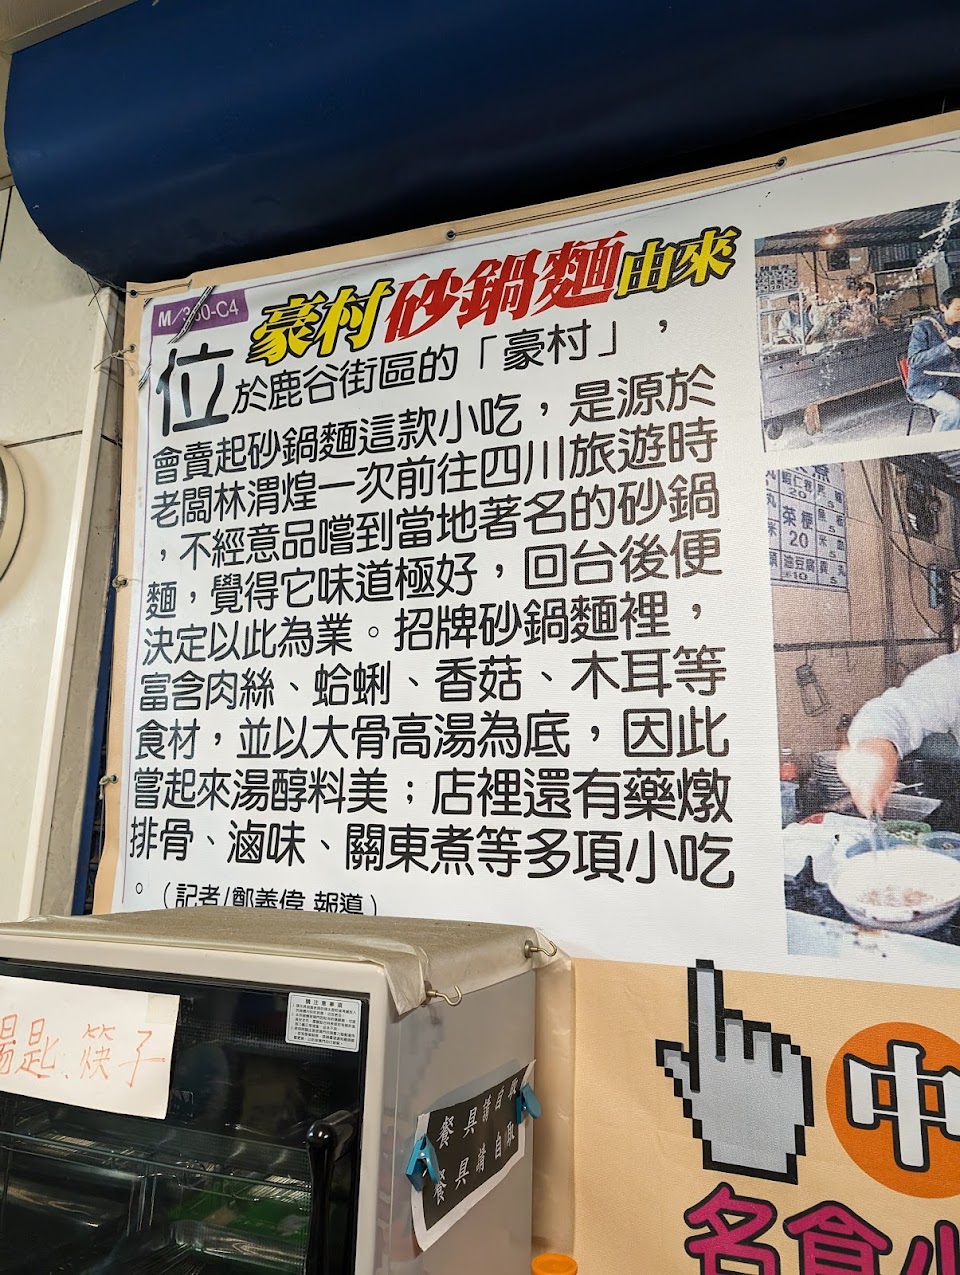 豪村砂鍋麵由來
位於鹿谷街區的「豪村」，
會賣起砂鍋麵這款小吃，是源於
老闆林渭煌一次前往四川旅遊時
，不經意品嚐到當地著名的砂鍋
麵，覺得它味道極好，回台後便
決定以此為業。招牌砂鍋麵裡，
富含肉絲、蛤蜊、香菇、木耳等
食材，並以大骨高湯為底，因此
嘗起來湯醇料美；店裡還有藥燉
排骨、滷味、關東煮等多項小吃
。（記者/鄭義偉 報導）
湯匙、筷子
餐具請自取
餐具請自取
中
名食小
菜便
20
油豆腐
10